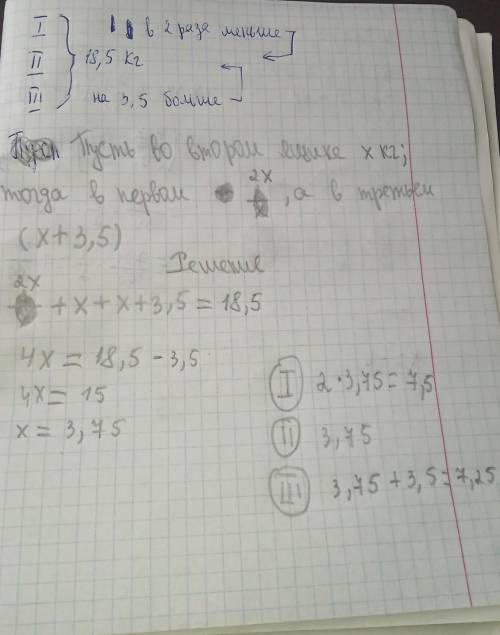 I в 2 раза меньше
II 18,5 кг
III на 3,5 больше
Пусть во втором ящике x кг;
тогда в первом 2x, а в третьем
(x+3,5)
Решение
2x + x + x + 3,5 = 18,5
4x = 18,5 - 3,5
4x = 15
x = 3,75
I 2·3,75=7,5
II 3,75
III 3,75+3,5=7,25